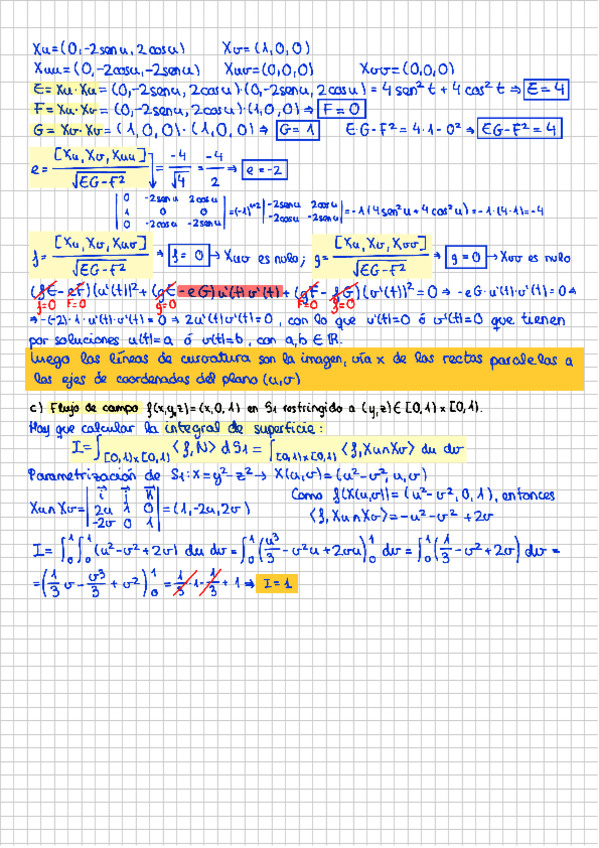 Xu=(0,-2senu, 2cosu) Xv=(1,0,0)
Xuu=(0,-2cosu,-2senu) Xuv=(0,0,0) Xvv=(0,0,0)
E=Xu·Xu=(0,-2senu, 2cosu)·(0,-2senu, 2cosu)=4sen²t+4cos²t ⇒ E=4
F=Xu·Xv=(0,-2senu, 2cosu)·(1,0,0) ⇒ F=0
G=Xv·Xv=(1,0,0)·(1,0,0) ⇒ G=1 E·G-F²=4·1-0² ⇒ EG-F²=4
e= [Xu,Xv,Xuu]/√EG-F² = -4/√4 = -4/2 ⇒ e=-2
|0 -2senu 2cosu; 1 0 0; 0 -2cosu -2senu| =(-1)¹⁺² |-2senu 2cosu; -2cosu -2senu| =-1(4sen²u+4cos²u)=-1·(4·1)=-4
f= [Xu,Xv,Xuv]/√EG-F² ⇒ f=0 → Xuv es nulo; g= [Xu,Xv,Xvv]/√EG-F² ⇒ g=0 → Xvv es nulo
(fE-eF)(u'(t))²+(gE-eG)u'(t)v'(t)+(gF-fG)(v'(t))²=0 ⇒ -eG·u'(t)·v'(t)=0⇒
f=0 F=0 g=0 F=0 f=0
⇒-(-2)·1·u'(t)·v'(t)=0 ⇒ 2u'(t)v'(t)=0, con lo que u'(t)=0 ó v'(t)=0 que tienen
por soluciones u(t)=a ó v(t)=b, con a,b∈ℝ.
Luego las líneas de curvatura son la imagen, vía x de las rectas paralelas a
los ejes de coordenadas del plano (u,v)
c) Flujo de campo f(x,y,z)=(x,0,1) en S₁ restringido a (y,z)∈[0,1]×[0,1].
Hay que calcular la integral de superficie:
I=∫[0,1]×[0,1] ⟨f,N⟩ dS₁ = ∫[0,1]×[0,1] ⟨f,Xu∧Xv⟩ du dv
Parametrización de S₁: x=y²-z² → X(u,v)=(u²-v²,u,v)
Xu∧Xv= |i j k; 2u 1 0; -2v 0 1| =(1,-2u,2v) Como f(X(u,v))=(u²-v²,0,1), entonces
⟨f,Xu∧Xv⟩=u²-v²+2v
I=∫₀¹∫₀¹(u²-v²+2v) du dv=∫₀¹(u³/3-v²u+2vu)₀¹ dv=∫₀¹(1/3-v²+2v)dv=
=(1/3 v-v³/3+v²)₀¹=1/3·1-1/3+1 ⇒ I=1